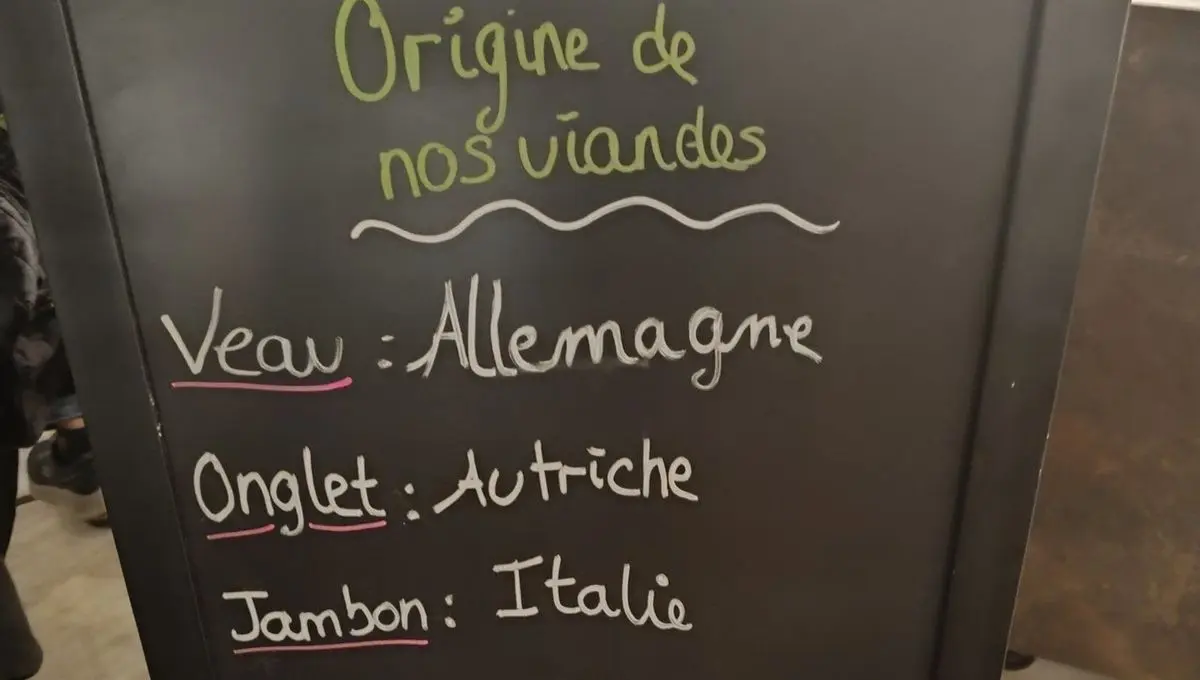 Origine de
nos viandes
Veau : Allemagne
Onglet : Autriche
Jambon : Italie